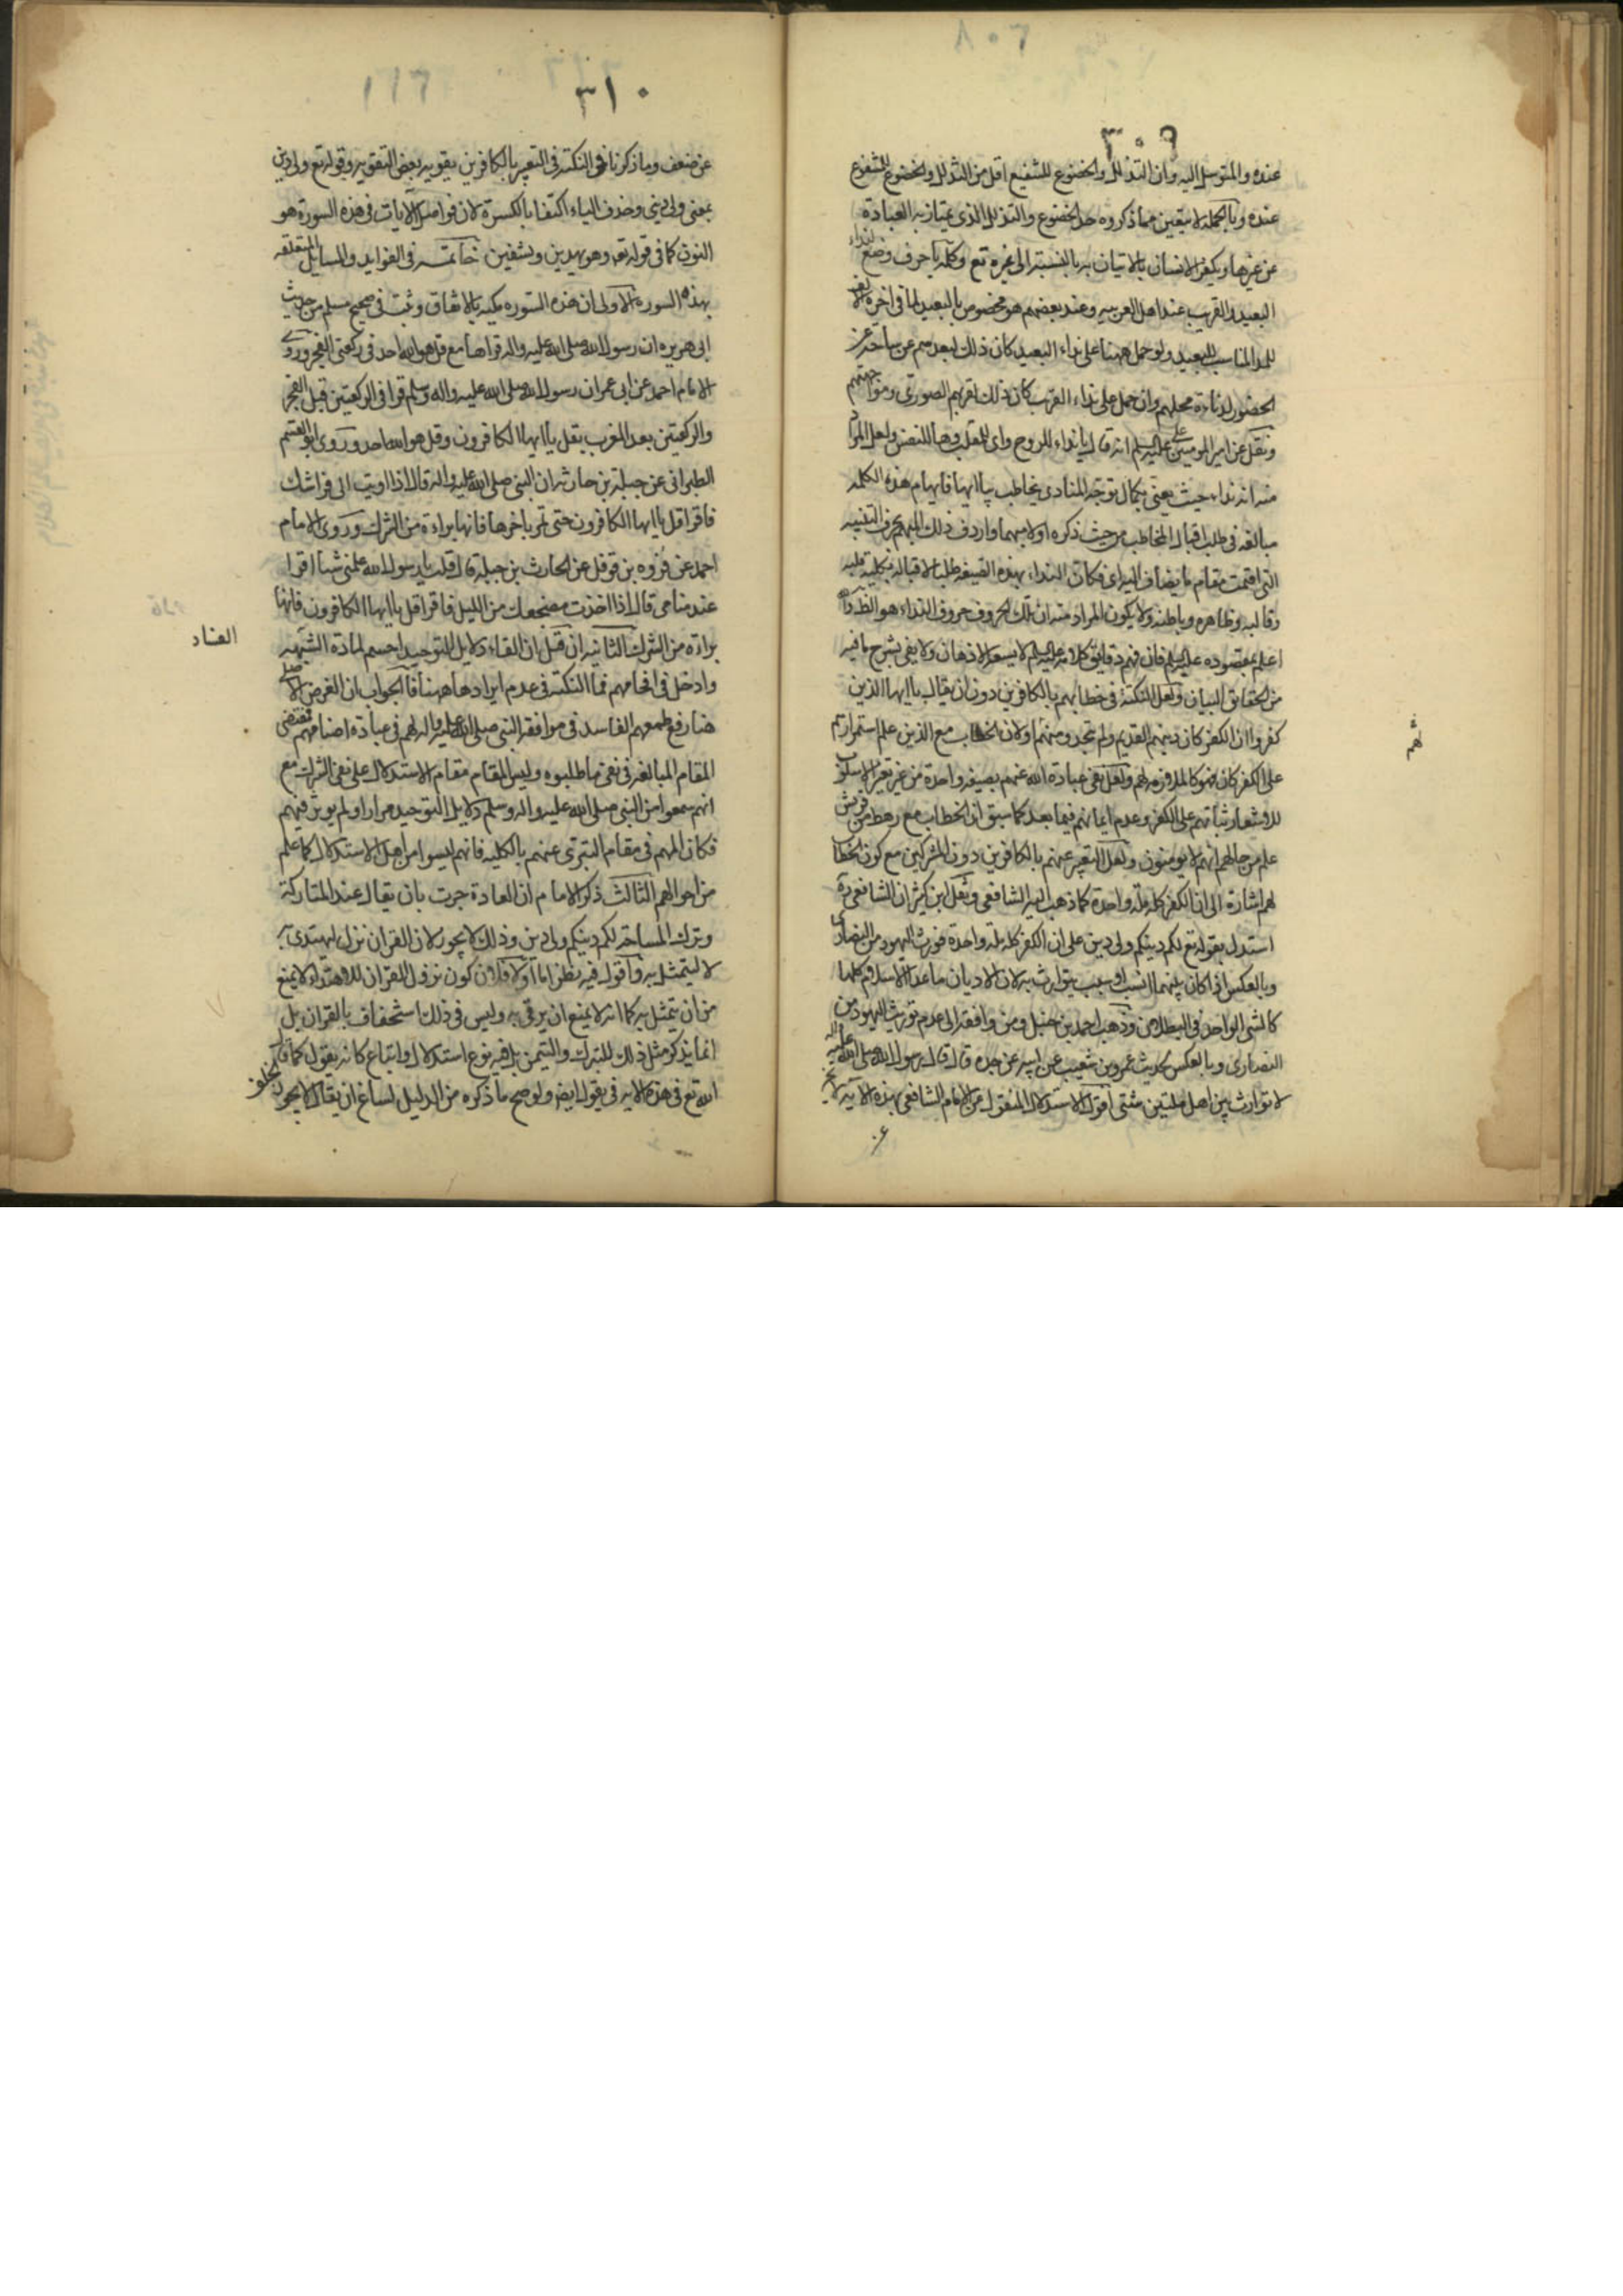 ٣٠٩
عنده والمتوسل اليه وان التذلل والخضوع للشفيع اقل من التذلل والخضوع للمشفوع
عنده وبالجملة لا يتعين مما ذكروه حد الخضوع والتذلل الذي يمتاز به العبادة
عن غيرها ويكفر الانسان بالاتيان به بالنسبة الى غيره تع وكلمة يا حرف وضع لنداء
البعيد والقريب عند اهل العربيه وعند بعضهم هو مخصوص بالبعيد لما في اخره الالف
للمد المناسب للبعيد ولو حمل ههنا على نداء البعيد كان ذلك لبعدهم عن ساحة عز
الحضور لدناءة محلهم وان حمل على نداء القريب كان ذلك لقربهم الصوري
ونقل عن امير المومنين على عليه السلم انه قال يا نداء للروح واى للقلب وها للنفس ولعل المراد
منه انه نداء حيث يعنى بكمال توجه المنادى يخاطب بيا ايها فابهام هذه الكلمه
مبالغه فى طلب اقبال المخاطب من حيث ذكره اولا مبهما واردف ذلك المبهم بحرف التنبيه
التى اقيمت مقام ما يضاف اليه اى فكان النداء بهذه الصيغه طلبا لاقباله بكليته قلبه
وقالبه وظاهره وباطنه ولا يكون المراد منه ان تلك الحروف حروف النداء هو الظ والله
اعلم بمقصوده عليه السلم فان فهم دقايق كلامه عليه السلم لا يسعه الاذهان ولا يفى بشرح ما فيه
من الحقايق البيان ولعل النكتة فى خطابهم بالكافرين دون ان يقال يا ايها الذين
كفروا ان الكفر كان دينهم القديم ولم يتجدد منهم ولان الخطاب مع الذين علم استمرارهم
على الكفر كان فهو كاللازم لهم ولعل نفى عبادة الله عنهم بصيغه واحدة من غير تغير الاسلوب
للاشعار بثباتهم على الكفر وعدم ايمانهم فيما بعد كما سبق ان الخطاب مع رهط من قريش
علم من حالهم انهم لا يومنون ولعل التعبير عنهم بالكافرين دون المشركين مع كون الخطاب
لهم اشارة الى ان الكفر كله ملة واحدة كما ذهب اليه الشافعى ونقل ابن كثير ان الشافعى ره
استدل بقوله تع لكم دينكم ولى دين على ان الكفر كله ملة واحدة فورث اليهود من النصارى
وبالعكس اذا كان بينهما نسب او سبب يتوارث به لان الاديان ما عدا الاسلام كلها
كالشئ الواحد فى البطلان وذهب احمد بن حنبل ومن وافقه الى عدم توريث اليهود من
النصارى وبالعكس لحديث عمرو بن شعيب عن ابيه عن جده قال قال رسول الله صلى الله عليه واله
لا توارث بين اهل ملتين شتى اقول الاستدلال المنقول من الامام الشافعى بهذه الايه لا يخ
ثهم
٣١٠
عن ضعف وما ذكرناه فى النكتة فى التعبير بالكافرين يقويه بعض التقويه وقوله تع ولى دين
بمعنى ولى دينى وحذف الياء اكتفا بالكسرة لان فواصل الايات فى هذه السورة هو
النون كما فى قوله تعه وهو يهدين ويشفين خاتمة فى الفوايد والمسايل المتعلقه
بهذه السوره الاولى ان هذه السوره مكيه بالاتفاق وثبت فى صحيح مسلم من حديث
ابى هريره ان رسول الله صلى الله عليه واله قراها مع قل هو الله احد فى ركعتى الفجر وروى
الامام احمد عن ابى عمر ان رسول الله صلى الله عليه واله وسلم قرا فى الركعتين قبل الفجر
والركعتين بعد المغرب بقل يا ايها الكافرون وقل هو الله احد وروى ابو القسم
الطبرانى عن جبلة بن حارثه ان النبى صلى الله عليه واله قال اذا اويت الى فراشك
فاقرا قل يا ايها الكافرون حتى تمر باخرها فانها براءة من الشرك وروى الامام
احمد عن فروه بن نوفل عن الحارث بن جبلة قال قلت يا رسول الله علمنى شيئا اقرا
عند منامى قال اذا اخذت مضجعك من الليل فاقرا قل يا ايها الكافرون فانها
براءة من الشرك الثانيه ان قيل ان القاء دلايل التوحيد احسم لمادة الشبهه
وادخل فى افحامهم فما النكته فى عدم ايرادها ههنا فالجواب ان الغرض الاصلى
هنا رفع طمعهم الفاسد فى موافقه النبى صلى الله عليه واله لهم فى عبادة اصنامهم فمقتضى
المقام المبالغه فى نفى ما طلبوه وليس المقام مقام الاستدلال على نفى الشرك مع
انهم سمعوا من النبى صلى الله عليه واله وسلم دلايل التوحيد مرارا ولم يوثر فيهم
فكان المهم فى مقام التبرى عنهم بالكليه فانهم ليسوا من اهل الاستدلال كما علم
من احوالهم الثالث ذكر الامام ان العادة جرت بان يقال عند المتاركة
وترك المساحة لكم دينكم ولى دين وذلك لا يجوز لان القران نزل ليهتدى به
لا ليتمثل به واقول فيه نظر اما اولا فلان كون نزول القران للاهتداء لا يمنع
من ان يتمثل به كما انه لا يمنع ان يرقى به وليس فى ذلك استخفاف بالقران بل
انما يذكر مثل ذلك للتبرك والتيمن بل فيه نوع استدلال واتباع كانه يقول كما قال
الله تع فى هذه الايه فى يقول ايضه ولو صح ما ذكره من الدليل لساغ ان يقال لا يجوز
العناد